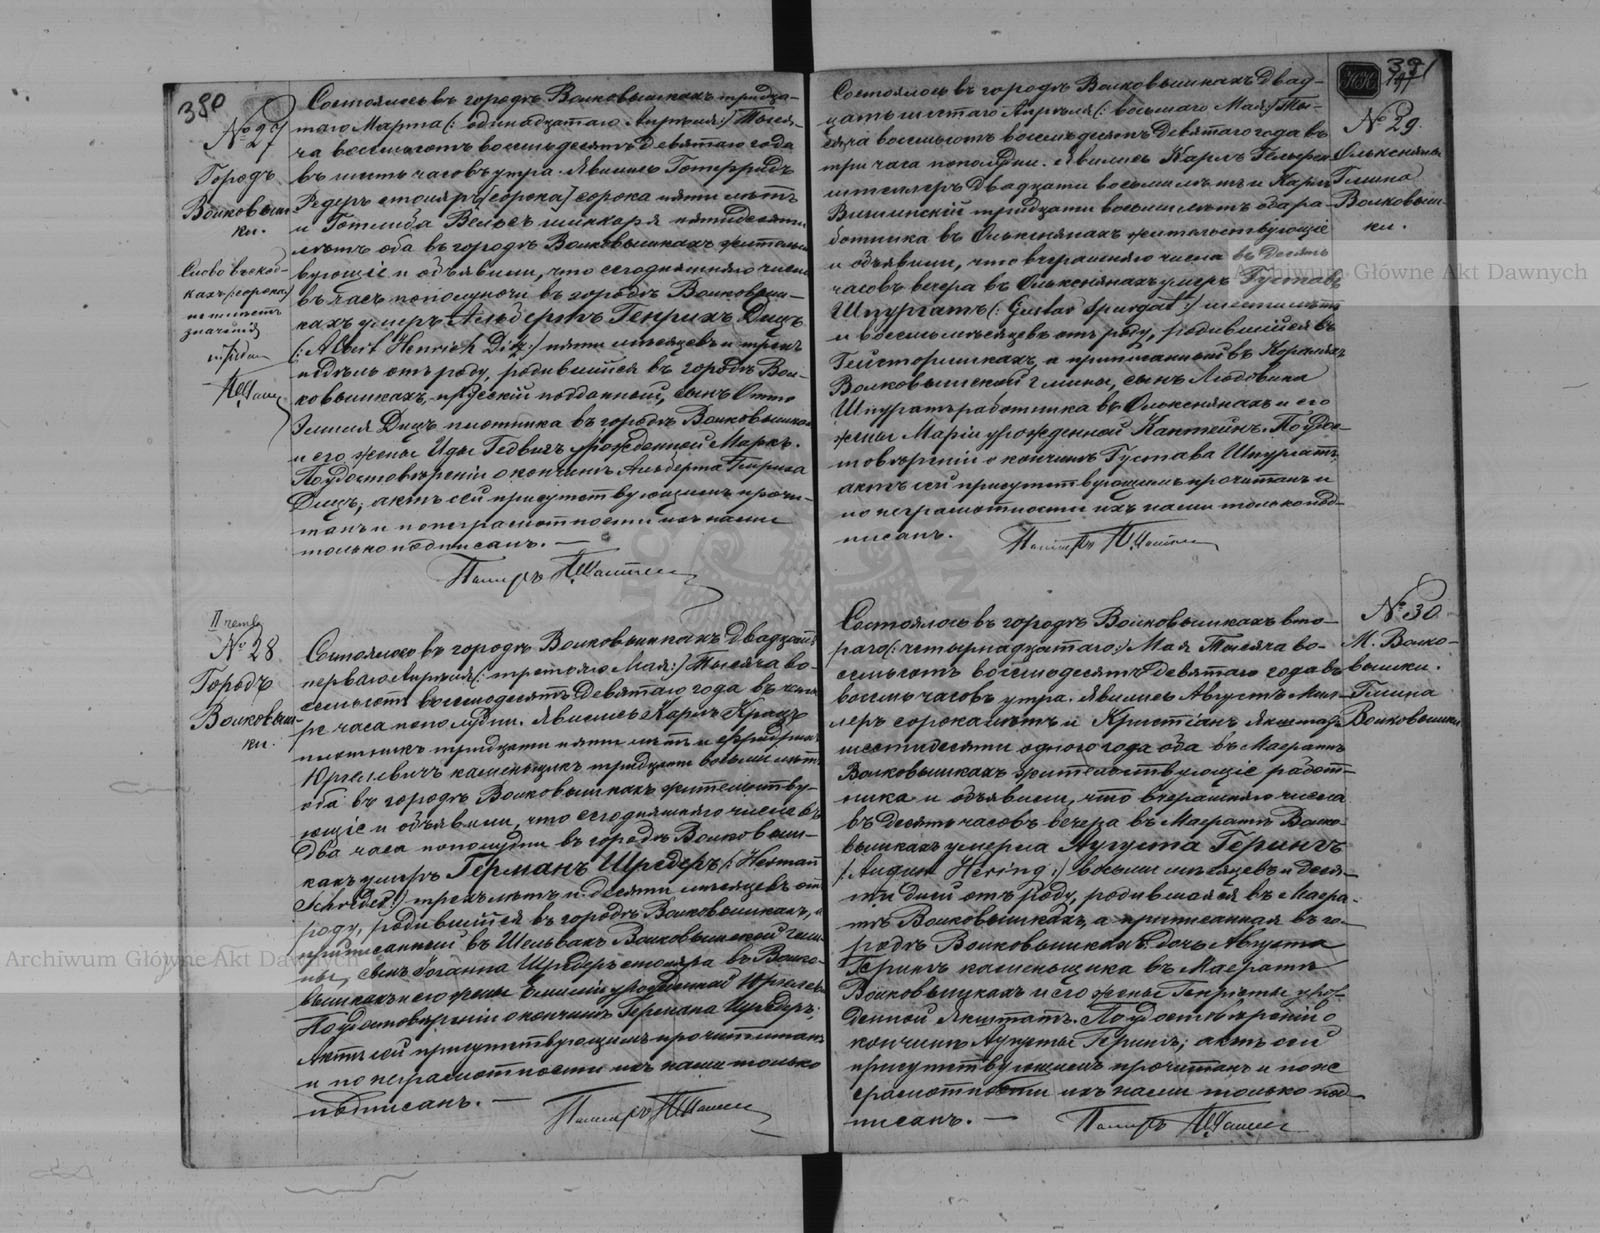 380
№ 27
Городъ
Волковыш-
ки.
Слово въ скоб-
кахъ /:сорока:/
не имѣетъ
значенія
Состоялось въ городѣ Волковышкахъ тридца-
таго Марта (: одинадцатаго Апрѣля:) Тыся-
ча восемьсотъ восемьдесятъ девятаго года
въ шесть часовъ утра. Явились Готфридъ
Редеръ столяръ [сорока] сорока пяти лѣтъ
и Готлибъ Вельсъ шинкаря пятидесяти
лѣтъ оба въ городѣ Волковышкахъ житель-
вующіе и объявили, что сегодняшняго числа
въ часъ пополуночи въ городѣ Волковыш-
кахъ умеръ Альбертъ Генрихъ Дицъ
(: Albert Henrich Ditz:) пяти мѣсяцевъ и трехъ
недѣль отъ роду, родившійся въ городѣ Вол-
ковышкахъ, прусскій подданный, сынъ Отто
Эмиля Дицъ плотника въ городѣ Волковышкахъ
и его жены Иды Гедвигъ урожденной Маркъ.
По удостовѣреніи о кончинѣ Альберта Генриха
Дицъ, актъ сей присутствующимъ прочи-
танъ и по неграмотности ихъ нами
только подписанъ. —
Пасторъ
II четв
№ 28
Городъ
Волковыш-
ки.
Состоялось въ городѣ Волковышкахъ двадцать
перваго Апрѣля (: третьяго Мая:) Тысяча во-
семьсотъ восемьдесятъ девятаго года въ четы-
ре часа пополудни. Явились Карлъ Кранцъ
плотникъ тридцати пяти лѣтъ и Фридрихъ
Юргелевичъ каменьщикъ тридцати восьми лѣтъ
оба въ городѣ Волковышкахъ жительству-
ющіе и объявили, что сегодняшняго числа въ
два часа пополудни въ городѣ Волковыш-
кахъ умеръ Германъ Шредеръ (: Hermann
Schreder:) трехъ лѣтъ и десяти мѣсяцевъ отъ
роду, родившійся въ городѣ Волковышкахъ, а
приписанный въ Шельвахъ Волковышской гми-
ны, сынъ Іоганна Шредеръ столяра въ Волко-
вышкахъ и его жены Эмиліи урожденной
По удостовѣреніи о кончинѣ Германа Шредеръ,
Актъ сей присутствующимъ прочитанъ
и по неграмотности ихъ нами только
подписанъ. —
Пасторъ
381
№ 29.
Ольксняны
Гмина
Волковыш-
ки.
Состоялось въ городѣ Волковышкахъ двад-
цать шестаго Апрѣля (: восьмаго Мая:) Ты-
сяча восемьсотъ восемьдесятъ девятаго года въ
три часа пополудни. Явились Карлъ
двадцати восьми лѣтъ и Карлъ
Вишинскій тридцати восьми лѣтъ оба ра-
ботника въ Ольксянахъ жительствующіе
и объявили, что вчерашняго числа въ десять
часовъ вечера въ Ольксянахъ умеръ Густавъ
Шпургатъ (: Gustav Spurgat:) шести лѣтъ
и восемь мѣсяцевъ отъ роду, родившійся въ
Гейсторишкахъ, а приписанный въ
Волковышской гмины, сынъ Людовика
Шпургатъ работника въ Ольксянахъ и его
жены Маріи урожденной Каптейнъ. По удос-
товѣреніи о кончинѣ Густава Шпургатъ,
актъ сей присутствующимъ прочитанъ и
по неграмотности ихъ нами только под-
писанъ.
Пасторъ
№ 30
М. Волко-
вышки.
Гмина
Волковышки
Состоялось въ городѣ Волковышкахъ вто-
раго (: четырнадцатаго:) Мая Тысяча во-
семьсотъ восемьдесятъ девятаго года въ
восемь часовъ утра. Явились Августъ Мил-
леръ сорока лѣтъ и Кристіанъ Якштатъ
шестидесяти одного года оба въ Маератѣ
Волковышкахъ жительствующіе работ-
ника и объявили, что вчерашняго числа
въ десять часовъ вечера въ Маератѣ Волко-
вышкахъ умерла Аугуста Герингъ
/: August Hering:/ восьми мѣсяцевъ и деся-
ти дней отъ роду, родившаяся въ Маера-
тѣ Волковышкахъ, а приписанная въ го-
родѣ Волковышкахъ дочь Августа
Герингъ каменьщика въ Маератѣ
Волковышкахъ и его жены Генріэты урож-
денной Якштатъ. По удостовѣреніи о
кончинѣ Аугусты Герингъ, актъ сей
присутствующимъ прочитанъ и по не-
грамотности ихъ нами только под-
писанъ. —
Пасторъ
Archiwum Główne Akt Dawnych
Archiwum Główne Akt Dawnych